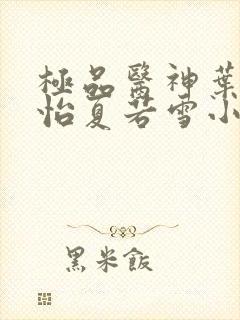 極品醫神葉
怡夏若雪小
黑米飯